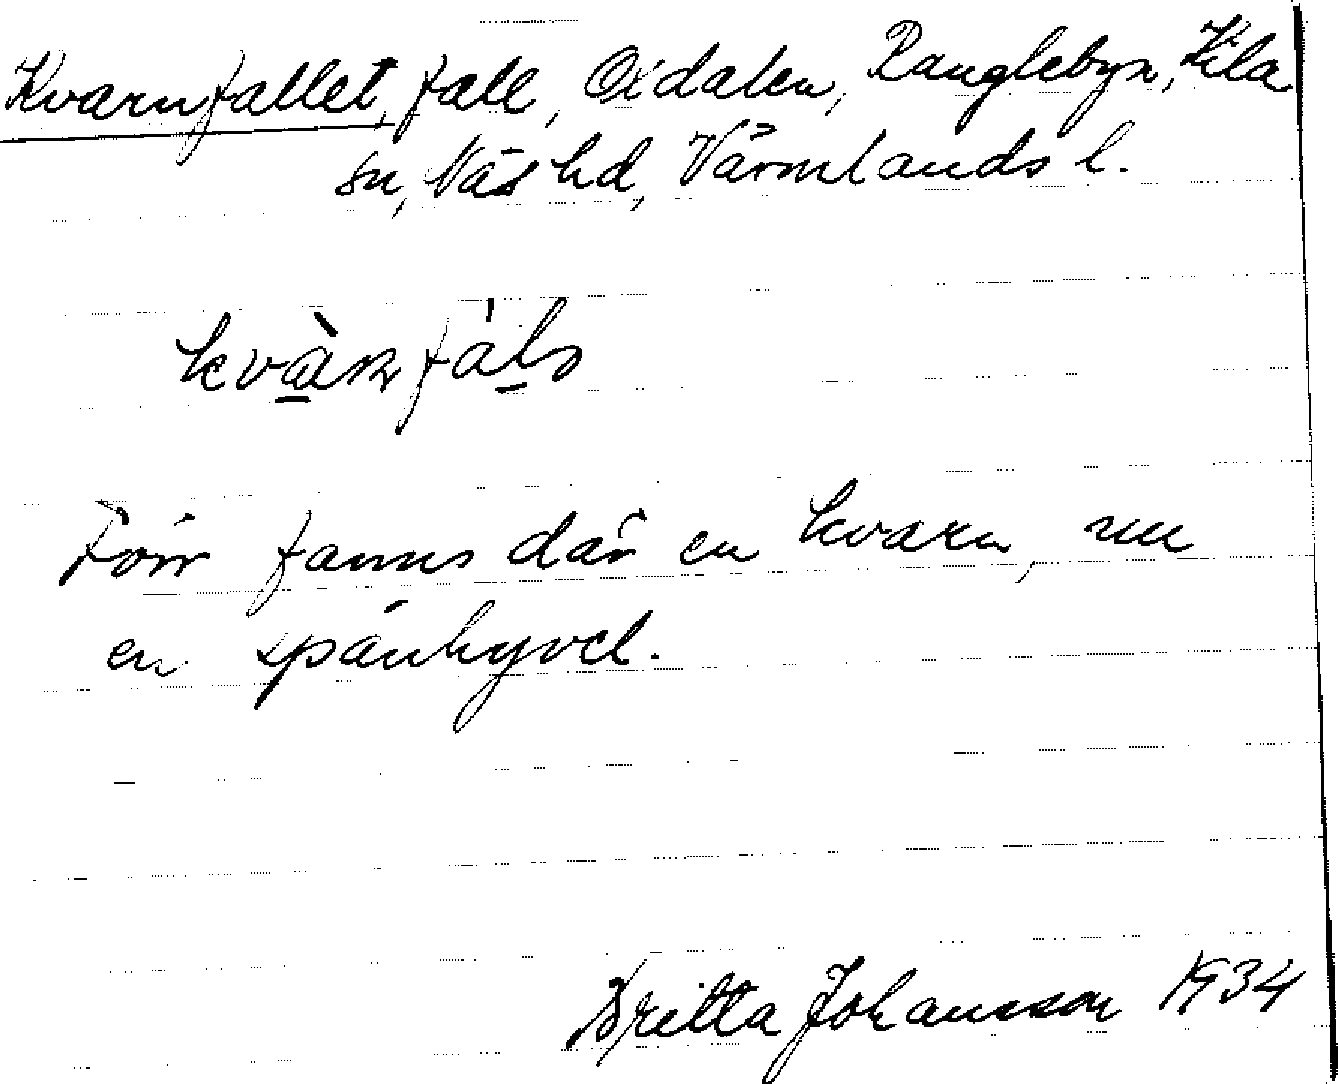 Kvarnfallet, fall, Oxdalen, Ranglebyn, Kila
sn, Näs hd, Värmlands l.
kvà̱ɳfál̠ə
Förr fanns där en kvarn, nu
en spånhyvel.
Britta Johansson 1934